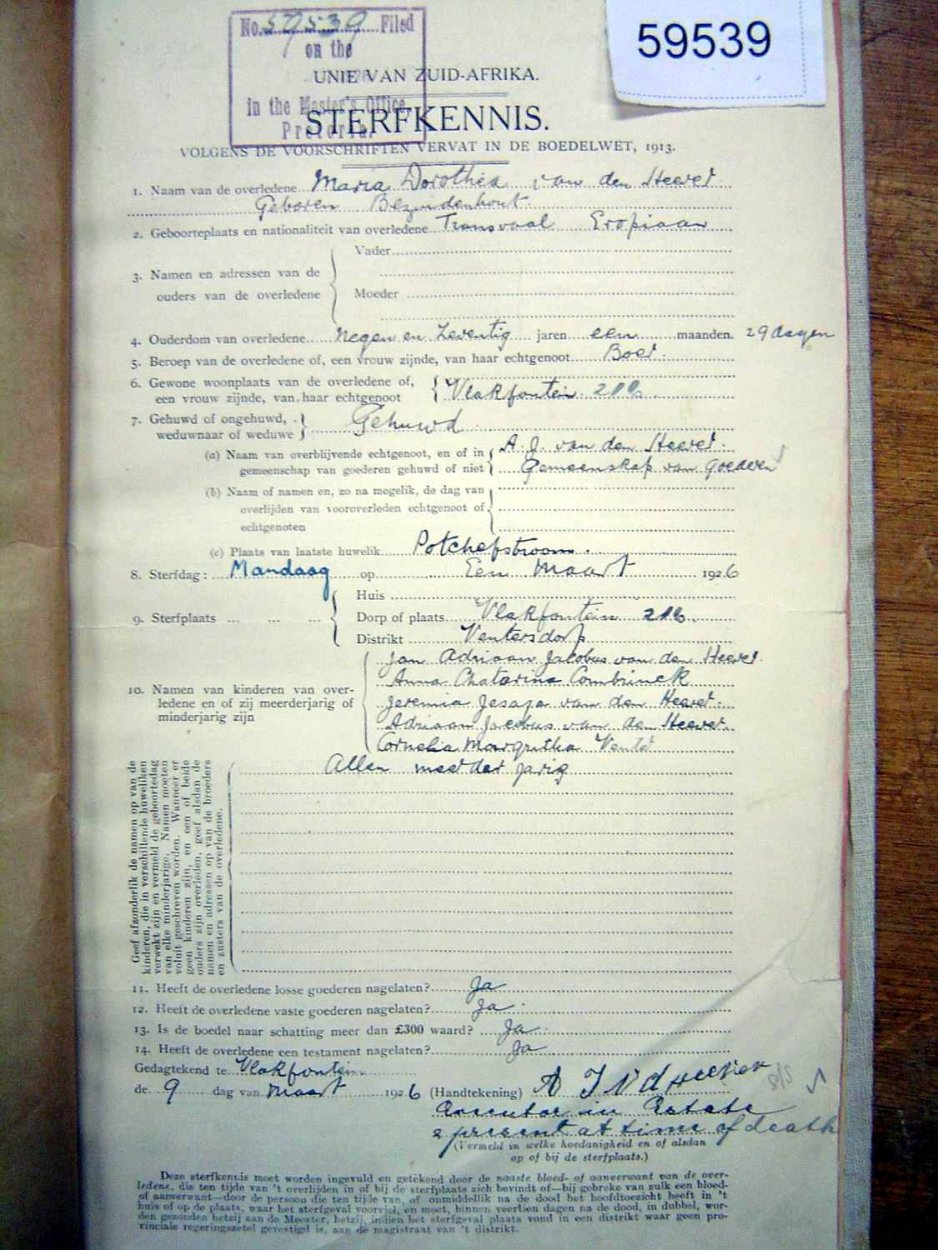 59539
No. 59539 Filed
on the
UNIE VAN ZUID-AFRIKA.
in the Master's Office
Pretoria.
STERFKENNIS.
VOLGENS DE VOORSCHRIFTEN VERVAT IN DE BOEDELWET, 1913.
1. Naam van de overledene Maria Dorothea van den Heever
Geboren Bezuidenhout
2. Geboorteplaats en nationaliteit van overledene Transvaal Eropiaan
3. Namen en adressen van de ouders van de overledene
Vader
Moeder
4. Ouderdom van overledene negen en Zeventig jaren een maanden. 29 dagen
5. Beroep van de overledene of, een vrouw zijnde, van haar echtgenoot Boer.
6. Gewone woonplaats van de overledene of, een vrouw zijnde, van haar echtgenoot Vlakfontein
7. Gehuwd of ongehuwd, weduwnaar of weduwe Gehuwd
(a) Naam van overblijvende echtgenoot, en of in A. J. van den Heever
gemeenschap van goederen gehuwd of niet Gemeenskap van Goederen
(b) Naam of namen en, zo na mogelik, de dag van
overlijden van vooroverleden echtgenoot of
echtgenoten
(c) Plaats van laatste huwelik Potchefstroom.
8. Sterfdag: Mandaag op Een Maart 1926
9. Sterfplaats
Huis
Dorp of plaats Vlakfontein
Distrikt Ventersdorp
10. Namen van kinderen van overledene en of zij meerderjarig of minderjarig zijn
Jan Adriaan Jacobus van den Heever
Anna Chatarina Combrinck
Jeremia Jesaja van den Heever
Adriaan Jacobus van den Heever
Cornelia Margritha Venter
Allen meerder jarig
Geef afzonderlik de namen op van de
kinderen, die in verschillende huweliken
verwekt zijn en vermeld de geboortedag
van elke minderjarige. Namen moeten
voluit geschreven worden. Wanneer er
geen kinderen zijn, en een of beide
ouders zijn overleden, geef alsdan de
namen en adressen op van de broeders
en zusters van de overledene.
11. Heeft de overledene losse goederen nagelaten? Ja
12. Heeft de overledene vaste goederen nagelaten? Ja
13. Is de boedel naar schatting meer dan £300 waard? Ja
14. Heeft de overledene een testament nagelaten? Ja
Gedagtekend te Vlakfontein
de 9 dag van Maart 1926 (Handtekening) A J V d Heever
Executor in Estate
& present at time of death
(Vermeld in welke hoedanigheid en of alsdan
op of bij de sterfplaats.)
Deze sterfkennis moet worden ingevuld en getekend door de naaste bloed- of aanverwant van de over-
ledene, die ten tijde van 't overlijden in of bij de sterfplaats zich bevindt of—bij gebreke van zulk een bloed-
of aanverwant—door de persoon die ten tijde van, of onmiddellik na de dood het hoofdtoezicht heeft in 't
huis of op de plaats, waar het sterfgeval voorviel, en moet, binnen veertien dagen na de dood, in dubbel, wor-
den gezonden hetzij aan de Meester, hetzij, indien het sterfgeval plaats vond in een distrikt waar geen pro-
vinciale regeringszetel gevestigd is, aan de magistraat van 't distrikt.